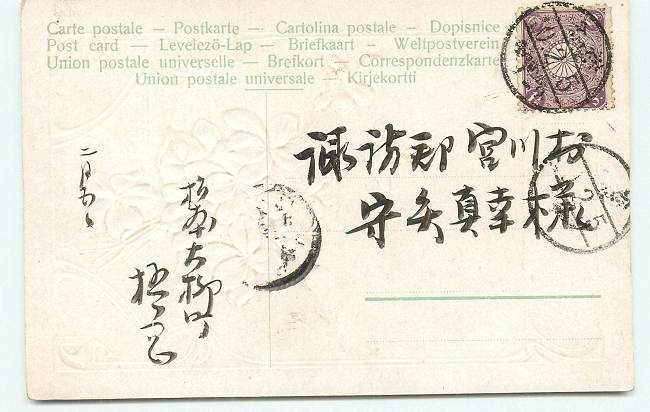 Carte postale – Postkarte – Cartolina postale – Dopisnice
Post card – Levelező-Lap – Briefkaart – Weltpostverein
Union postale universelle – Brefkort – Correspondenzkarte
Union postale universale – Kirjekortti
諏訪郡宮川村
守矢真幸様
大柳町
二月五日